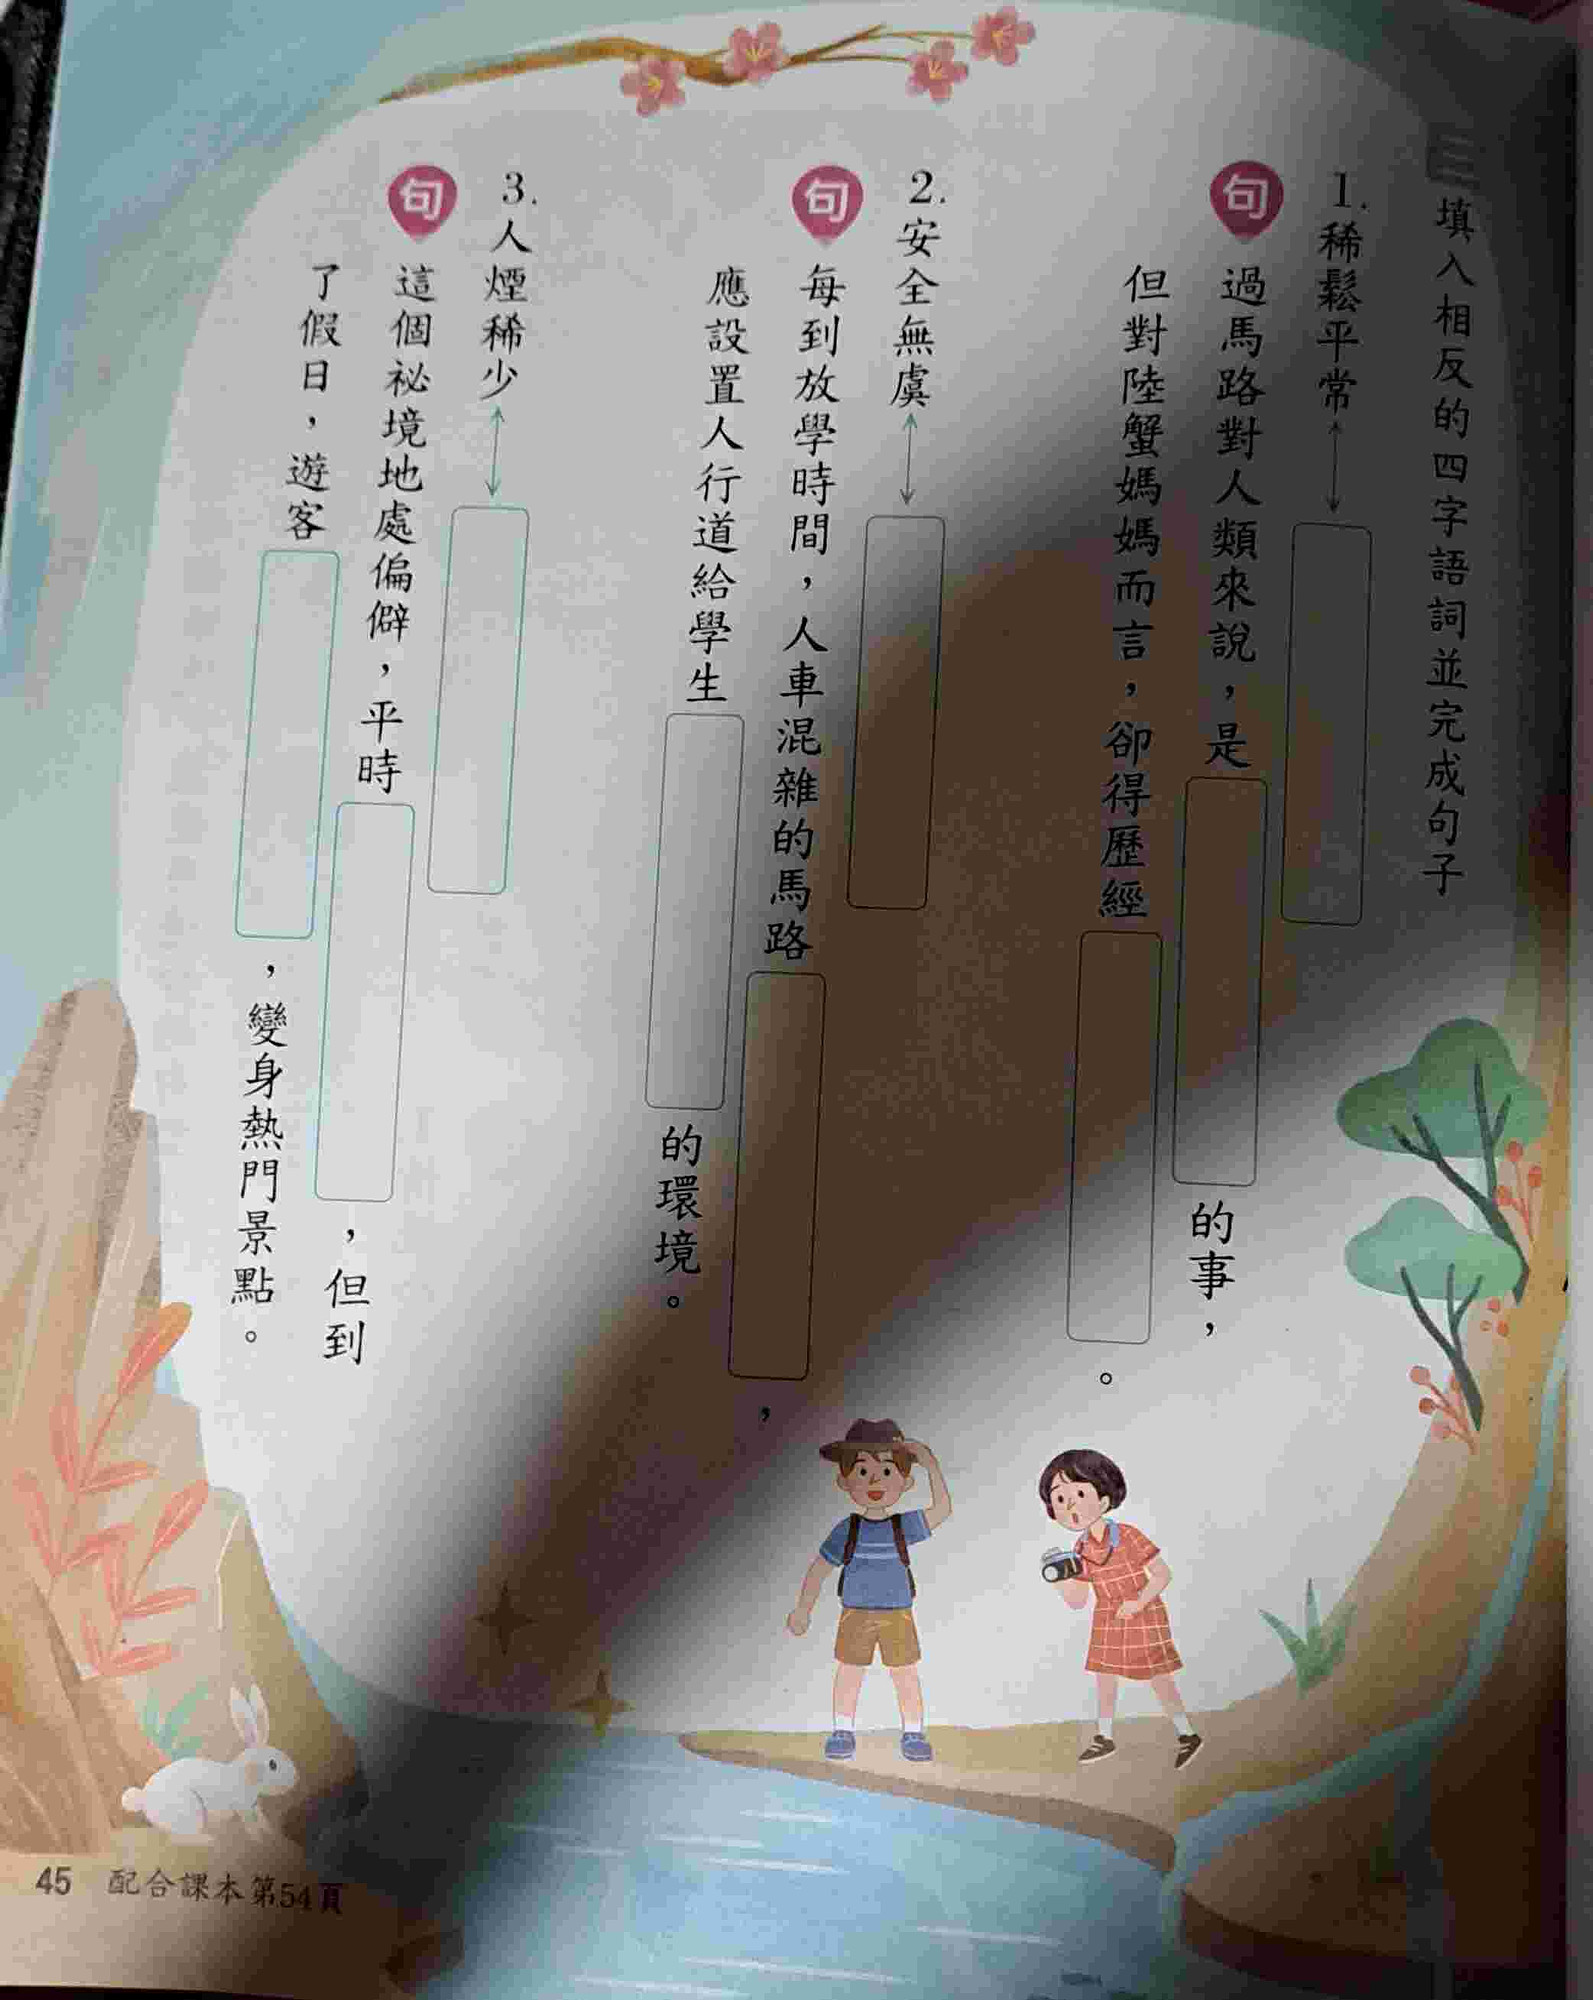 三 填入相反的四字語詞並完成句子
1. 稀鬆平常↔
句 過馬路對人類來說，是 的事，
但對陸蟹媽媽而言，卻得歷經 。
2. 安全無虞↔
句 每到放學時間，人車混雜的馬路 ，
應設置人行道給學生 的環境。
3. 人煙稀少↔
句 這個祕境地處偏僻，平時 ，但到
了假日，遊客 ，變身熱門景點。
45 配合課本第54頁